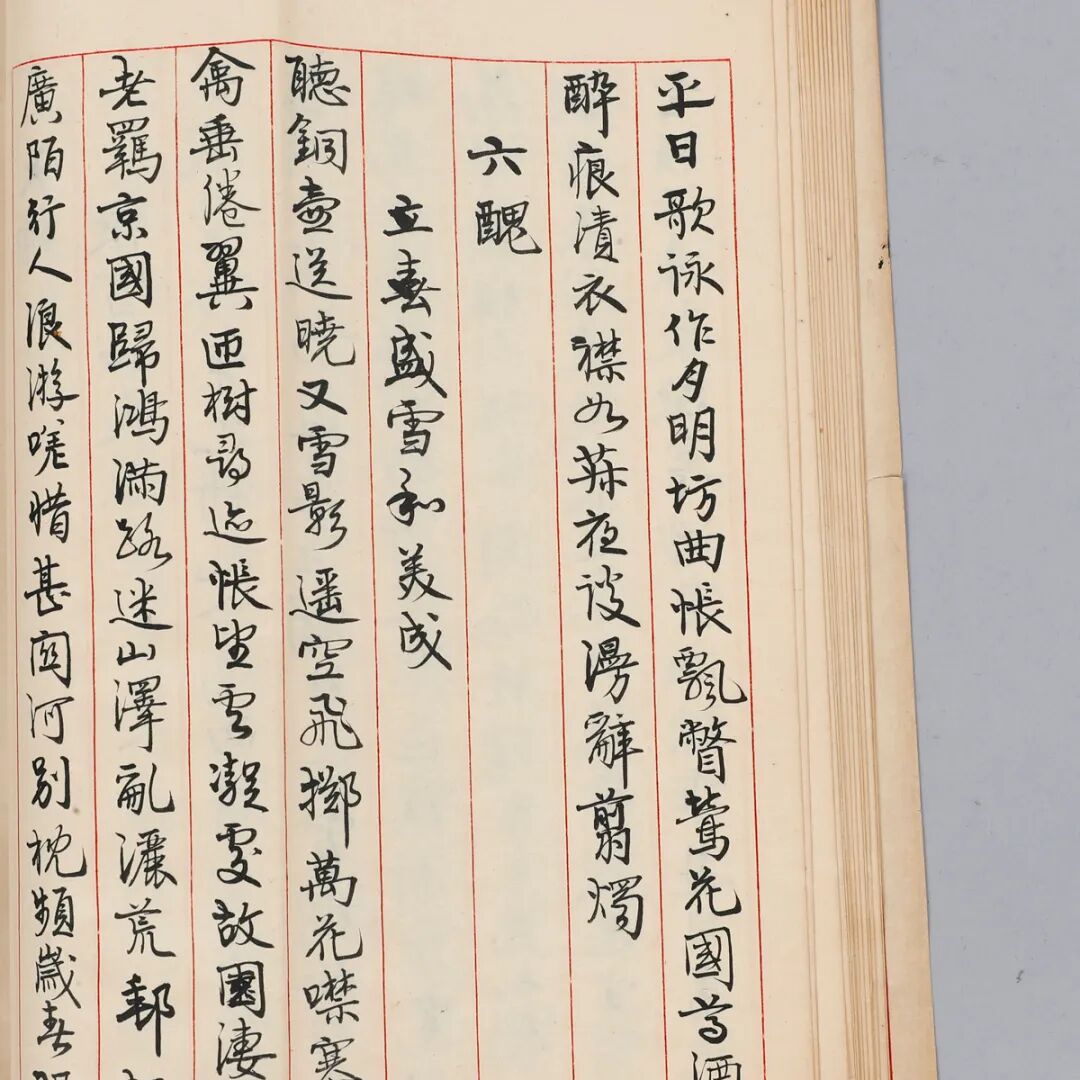 平日歌詠作夕明坊曲帳飄瞥鶯花國尊酒
醉痕漬衣襟如蘇夜談漫辭翦燭
六醜
立春盛雪和美成
聽銅壺送曉又雪影遥空飛擲萬花噤寒
禽垂倦翼匝樹尋迹悵望雲凝處故園淒
老羈京國歸鴻滿路迷山澤亂灑荒郵
廣陌行人浪游嗟惜甚關河別枕頻歲春